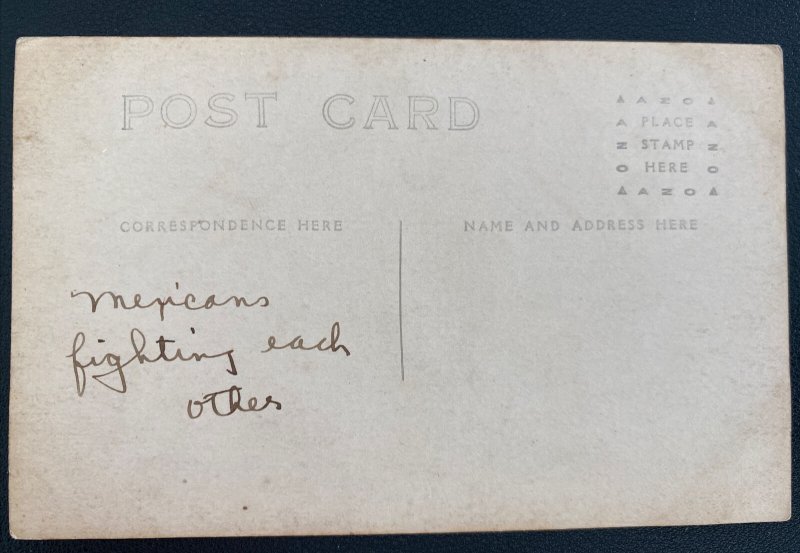 POST CARD
AZO
PLACE
STAMP
HERE
AZO
CORRESPONDENCE HERE
NAME AND ADDRESS HERE
Mexicans
fighting each
other